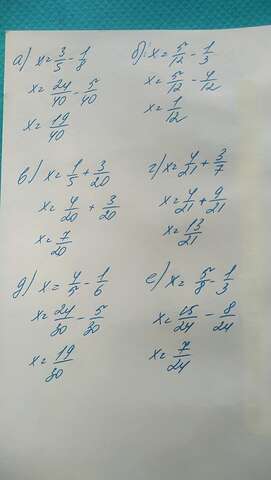 а) x = 3/5 - 1/8
x = 24/40 - 5/40
x = 19/40
б) x = 5/12 - 1/3
x = 5/12 - 4/12
x = 1/12
в) x = 1/5 + 3/20
x = 4/20 + 3/20
x = 7/20
г) x = 4/21 + 3/7
x = 4/21 + 9/21
x = 13/21
д) x = 4/5 - 1/6
x = 24/30 - 5/30
x = 19/30
е) x = 5/8 - 1/3
x = 15/24 - 8/24
x = 7/24